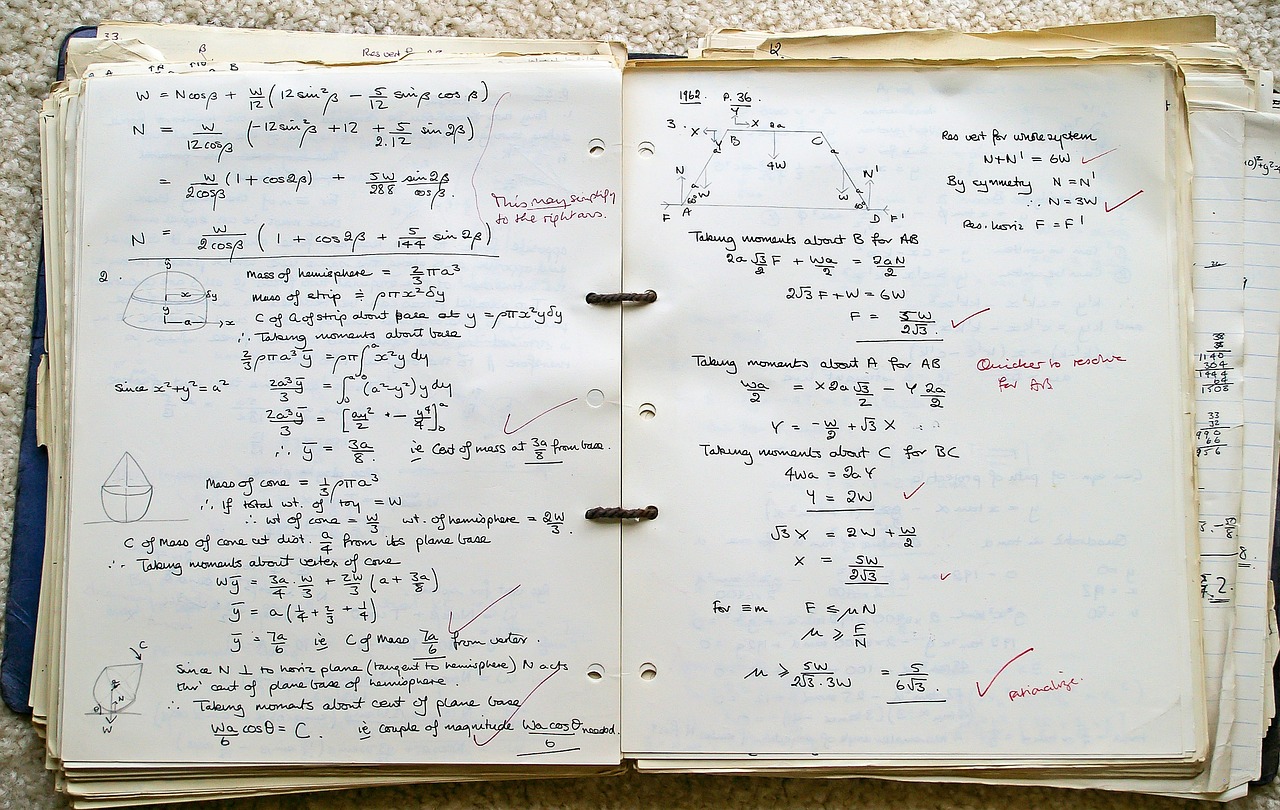 33.
β
Res vert
B
W = Ncosβ + W/12 (12sin²β − 5/12 sinβ cosβ)
N = W/12cosβ (−12sin²β + 12 + 5/2.12 sin2β)
= W/2cosβ (1 + cos2β) + 5W/288 sin2β/cosβ.
This may simplify
to the right ans.
N = W/2cosβ (1 + cos2β + 5/144 sin2β)
2.
y
x δy
y
a x
Mass of hemisphere = 2/3 πa³
Mass of strip �doteq ρπx²δy
C of G of strip about base at y = ρπx²yδy
∴ Taking moments about base
2/3 ρπa³ȳ = ρπ∫₀ᵃ x²y dy
Since x²+y² = a² 2a³ȳ/3 = ∫₀ᵃ (a²−y²) y dy
2a³ȳ/3 = [ay²/2 − y⁴/4]₀ᵃ
∴ ȳ = 3a/8 ie Cent of mass at 3a/8 from base.
Mass of cone = 1/3 ρπa³
∴ If total wt. of toy = W
∴ wt of cone = W/3 wt. of hemisphere = 2W/3.
C of Mass of cone at dist. a/4 from its plane base
∴ Taking moments about vertex of cone
Wȳ = 3a/4 . W/3 + 2W/3 (a + 3a/8)
ȳ = a(1/4 + 2/3 + 1/4)
ȳ = 7a/6 ie C of Mass 7a/6 from vertex.
C
N
θ
W
Since N ⊥ to horiz plane (tangent to hemisphere) N acts
thro' cent of plane base of hemisphere.
∴ Taking moments about cent of plane base
Wa/6 cosθ = C. ie couple of magnitude Wa cosθ/6 needed.
12.
1962. P. 36.
3.
Y
X X 2a
B C
Y a a
4W
N a a N'
W W
60° 60°
F A D F'
Res vert for whole system
N+N' = 6W
By symmetry N = N'
∴ N = 3W
Res. horiz F = F'
Taking moments about B for AB
2a √3/2 F + Wa/2 = 2aN/2
2√3 F + W = 6W
F = 5W/2√3.
Taking moments about A for AB
Quicker to resolve
for AB
Wa/2 = X 2a √3/2 − Y 2a/2
Y = −W/2 + √3 X
Taking moments about C for BC
4Wa = 2aY
Y = 2W
√3 X = 2W + W/2
X = 5W/2√3
For ≡m F ≤ μN
μ ≥ F/N
μ ≥ 5W/2√3.3W = 5/6√3.
rationalize.
38
38
1140
304
1444
64
1508
33
32
990
66
956